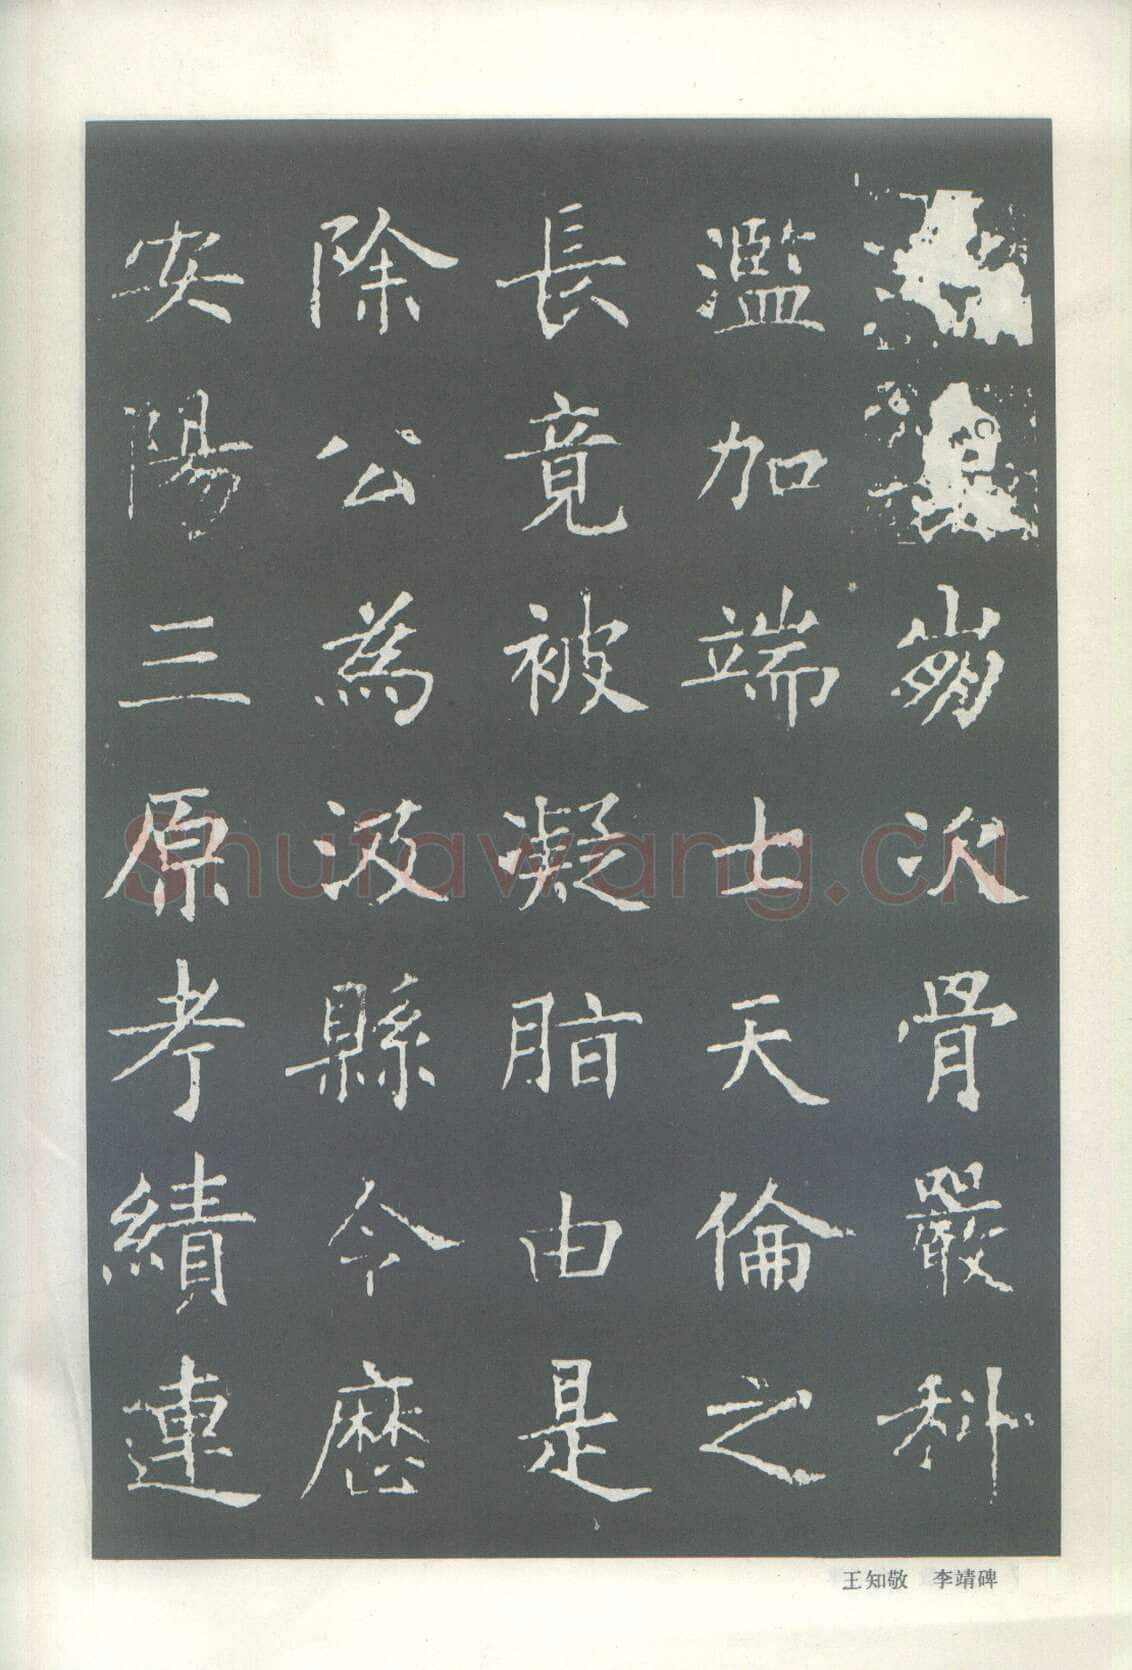 崩次骨嚴科
濫加端士天倫之
長竟被凝脂由是
除公為汲縣令歷
安陽三原考績連
王知敬 李靖碑
Shufawang.cn